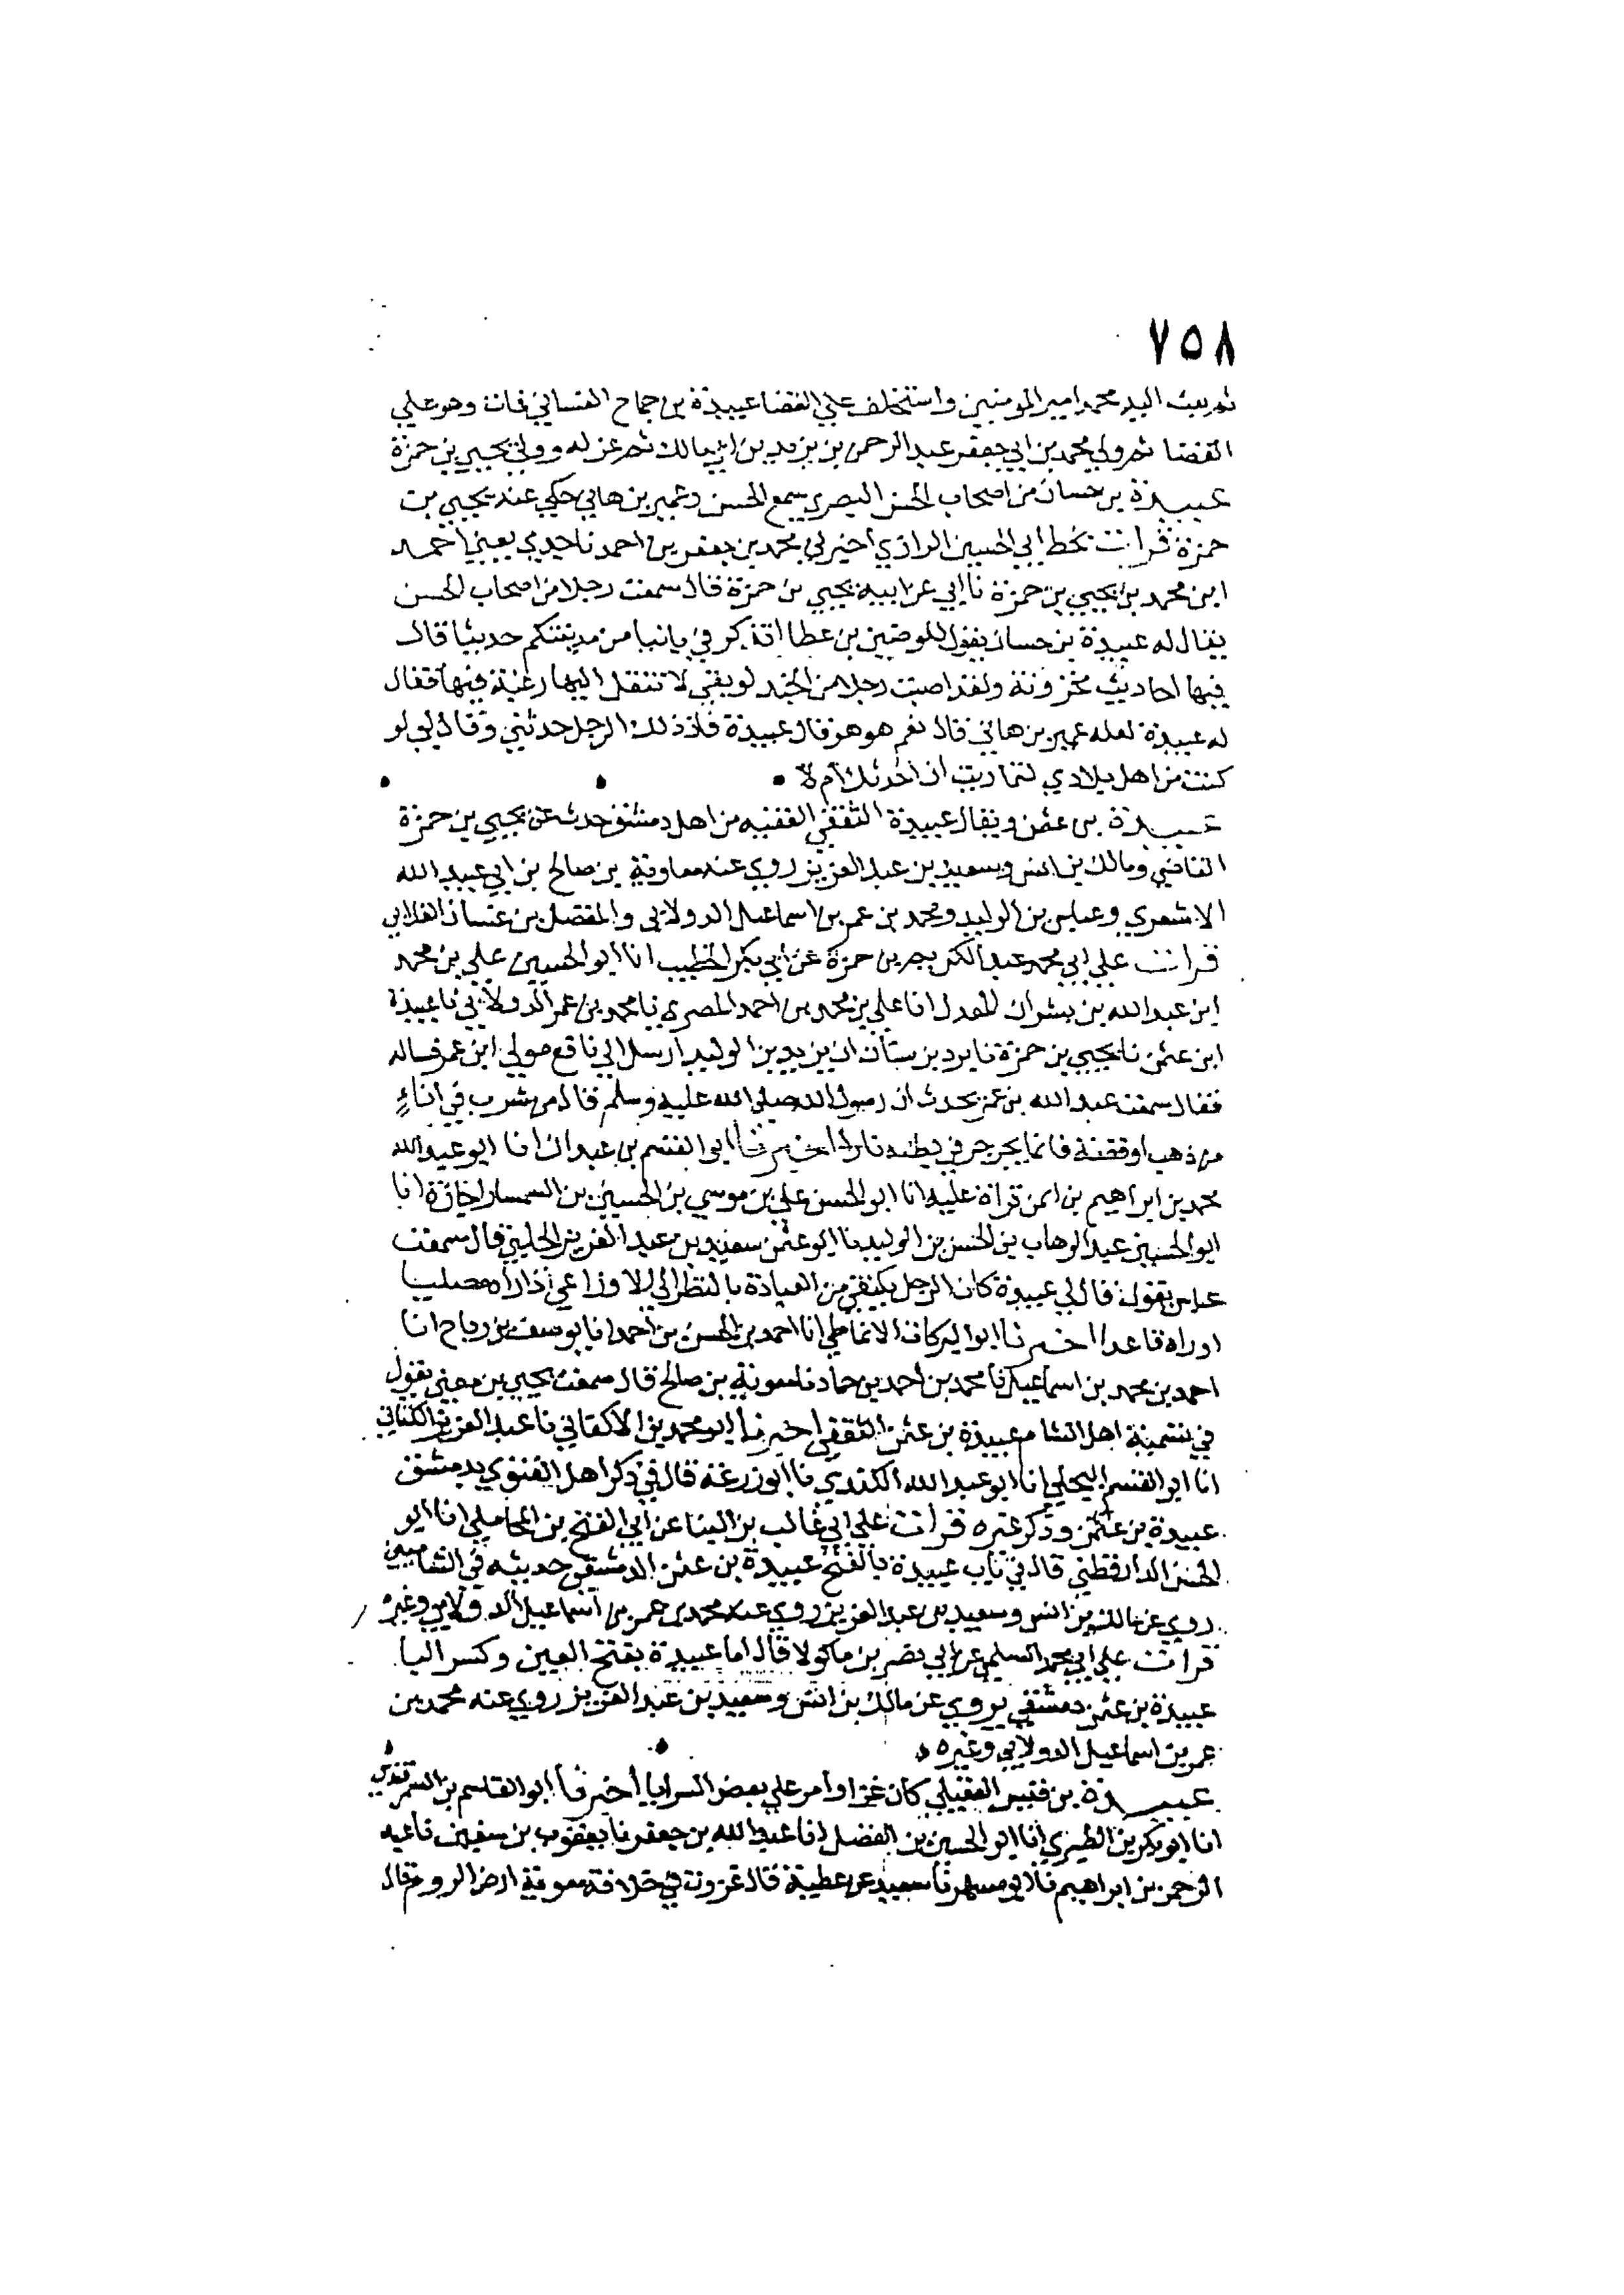 ٧٥٨
ثم بعث اليه محمد امير المومنين واستخلف علي القضا عبيدة بن جماح الغساني فمات وهو علي
القضا ثم ولي محمد بن ابي جعفر عبد الرحمن بن يزيد بن ابي مالك ثم عزله وولي يحيي بن حمزة
عبيدة بن حسان من اصحاب الحسن البصري سمع الحسن وعمير بن هاني حكي عنه يحيي بن
حمزة قرات بخط ابي الحسين الرازي اخبرني محمد بن جعفر بن احمد نا جدي يعني احمد
ابن محمد بن يحيي بن حمزة نا ابي عن ابيه يحيي بن حمزة قال سمعت رجلا من اصحاب الحسن
يقال له عبيدة بن حسان يقول للوضين بن عطا اتذكر في بانيا من مدينتكم حديثا قال
فيها احاديث مخزونة ولقد اصبت رجلا من الجند لو بقي لا تنتقل اليها رغبة فيها فقال
له عبيدة لعله عمير بن هاني قال نعم هو هو قال عبيدة فان ذلك الرجل حدثني وقال لي لو
كنت من اهل بلادي لتماريت ان احدثك ام لا
عبيدة بن عثمن ويقال عبيدة الثقفي الفقيه من اهل دمشق حدث عن يحيي بن حمزة
القاضي ومالك بن انس وسعيد بن عبد العزيز روي عنه معاوية بن صالح بن ابي عبيد الله
الاشعري وعباس بن الوليد ومحمد بن عمر بن اسماعيل الدولابي والمفضل بن غسان الغلابي
قرات علي ابي محمد عبد الكريم بن حمزة عن ابي بكر الخطيب انا ابو الحسين علي بن محمد
ابن عبد الله بن بشران المعدل انا علي بن محمد بن احمد المصري نا محمد بن عمر الدولابي نا عبيدة
ابن عثمن نا يحيي بن حمزة نا برد بن سنان ان يزيد بن الوليد ارسل الي نافع مولي ابن عمر فساله
فقال سمعت عبد الله بن عمر يحدث ان رسول الله صلي الله عليه وسلم قال من شرب في اناء
من ذهب او فضة فانما يجرجر في بطنه نارا اخبرنا ابو القسم بن عبدان انا ابو عبد الله
محمد بن ابراهيم بن ايمن قراة عليه انا ابو الحسن علي بن موسي بن الحسين بن السمسار اجازة انا
ابو الحسين عبد الوهاب بن الحسن بن الوليد نا ابو عثمن سعيد بن عبد العزيز الحلبي قال سمعت
عباس يقول قال لي عبيدة كان الرجل يكتفي من العبادة بالنظر الي الاوزاعي اذا راه مصليا
او راه قاعدا اخبرنا ابو البركات الانماطي انا احمد بن الحسن بن احمد انا يوسف بن رباح انا
احمد بن محمد بن اسماعيل نا محمد بن احمد بن حماد نا معوية بن صالح قال سمعت يحيي بن معين يقول
في تسمية اهل الشام عبيدة بن عثمن الثقفي اخبرنا ابو محمد بن الاكفاني نا عبد العزيز الكتاني
انا ابو القسم البجلي انا ابو عبد الله الكندي نا ابو زرعة قال في ذكر اهل الفتوي بدمشق
عبيدة بن عثمن وذكر غيره قرات علي ابي غالب بن البنا عن ابي الفتح بن المحاملي انا ابو
الحسن الدارقطني قال في باب عبيدة بالفتح عبيدة بن عثمن الدمشقي حديثه في الشاميين
روي عن مالك بن انس وسعيد بن عبد العزيز روي عنه محمد بن عمر بن اسماعيل الدولابي وغيره
قرات علي ابي محمد السلمي عن ابي نصر بن ماكولا قال اما عبيدة بفتح العين وكسر البا
عبيدة بن عثمن دمشقي يروي عن مالك بن انس وسعيد بن عبد العزيز روي عنه محمد بن
عمر بن اسماعيل الدولابي وغيره
عبيدة بن قيس العقيلي كان غزا وامر علي بعض السرايا اخبرنا ابو القاسم بن السمرقندي
انا ابو بكر بن الطبري انا ابو الحسين بن الفضل انا عبد الله بن جعفر نا يعقوب بن سفين نا عبد
الرحمن بن ابراهيم نا ابو مسهر نا سعيد عن عطية قال غزونا في خلافة معوية ارض الروم قال